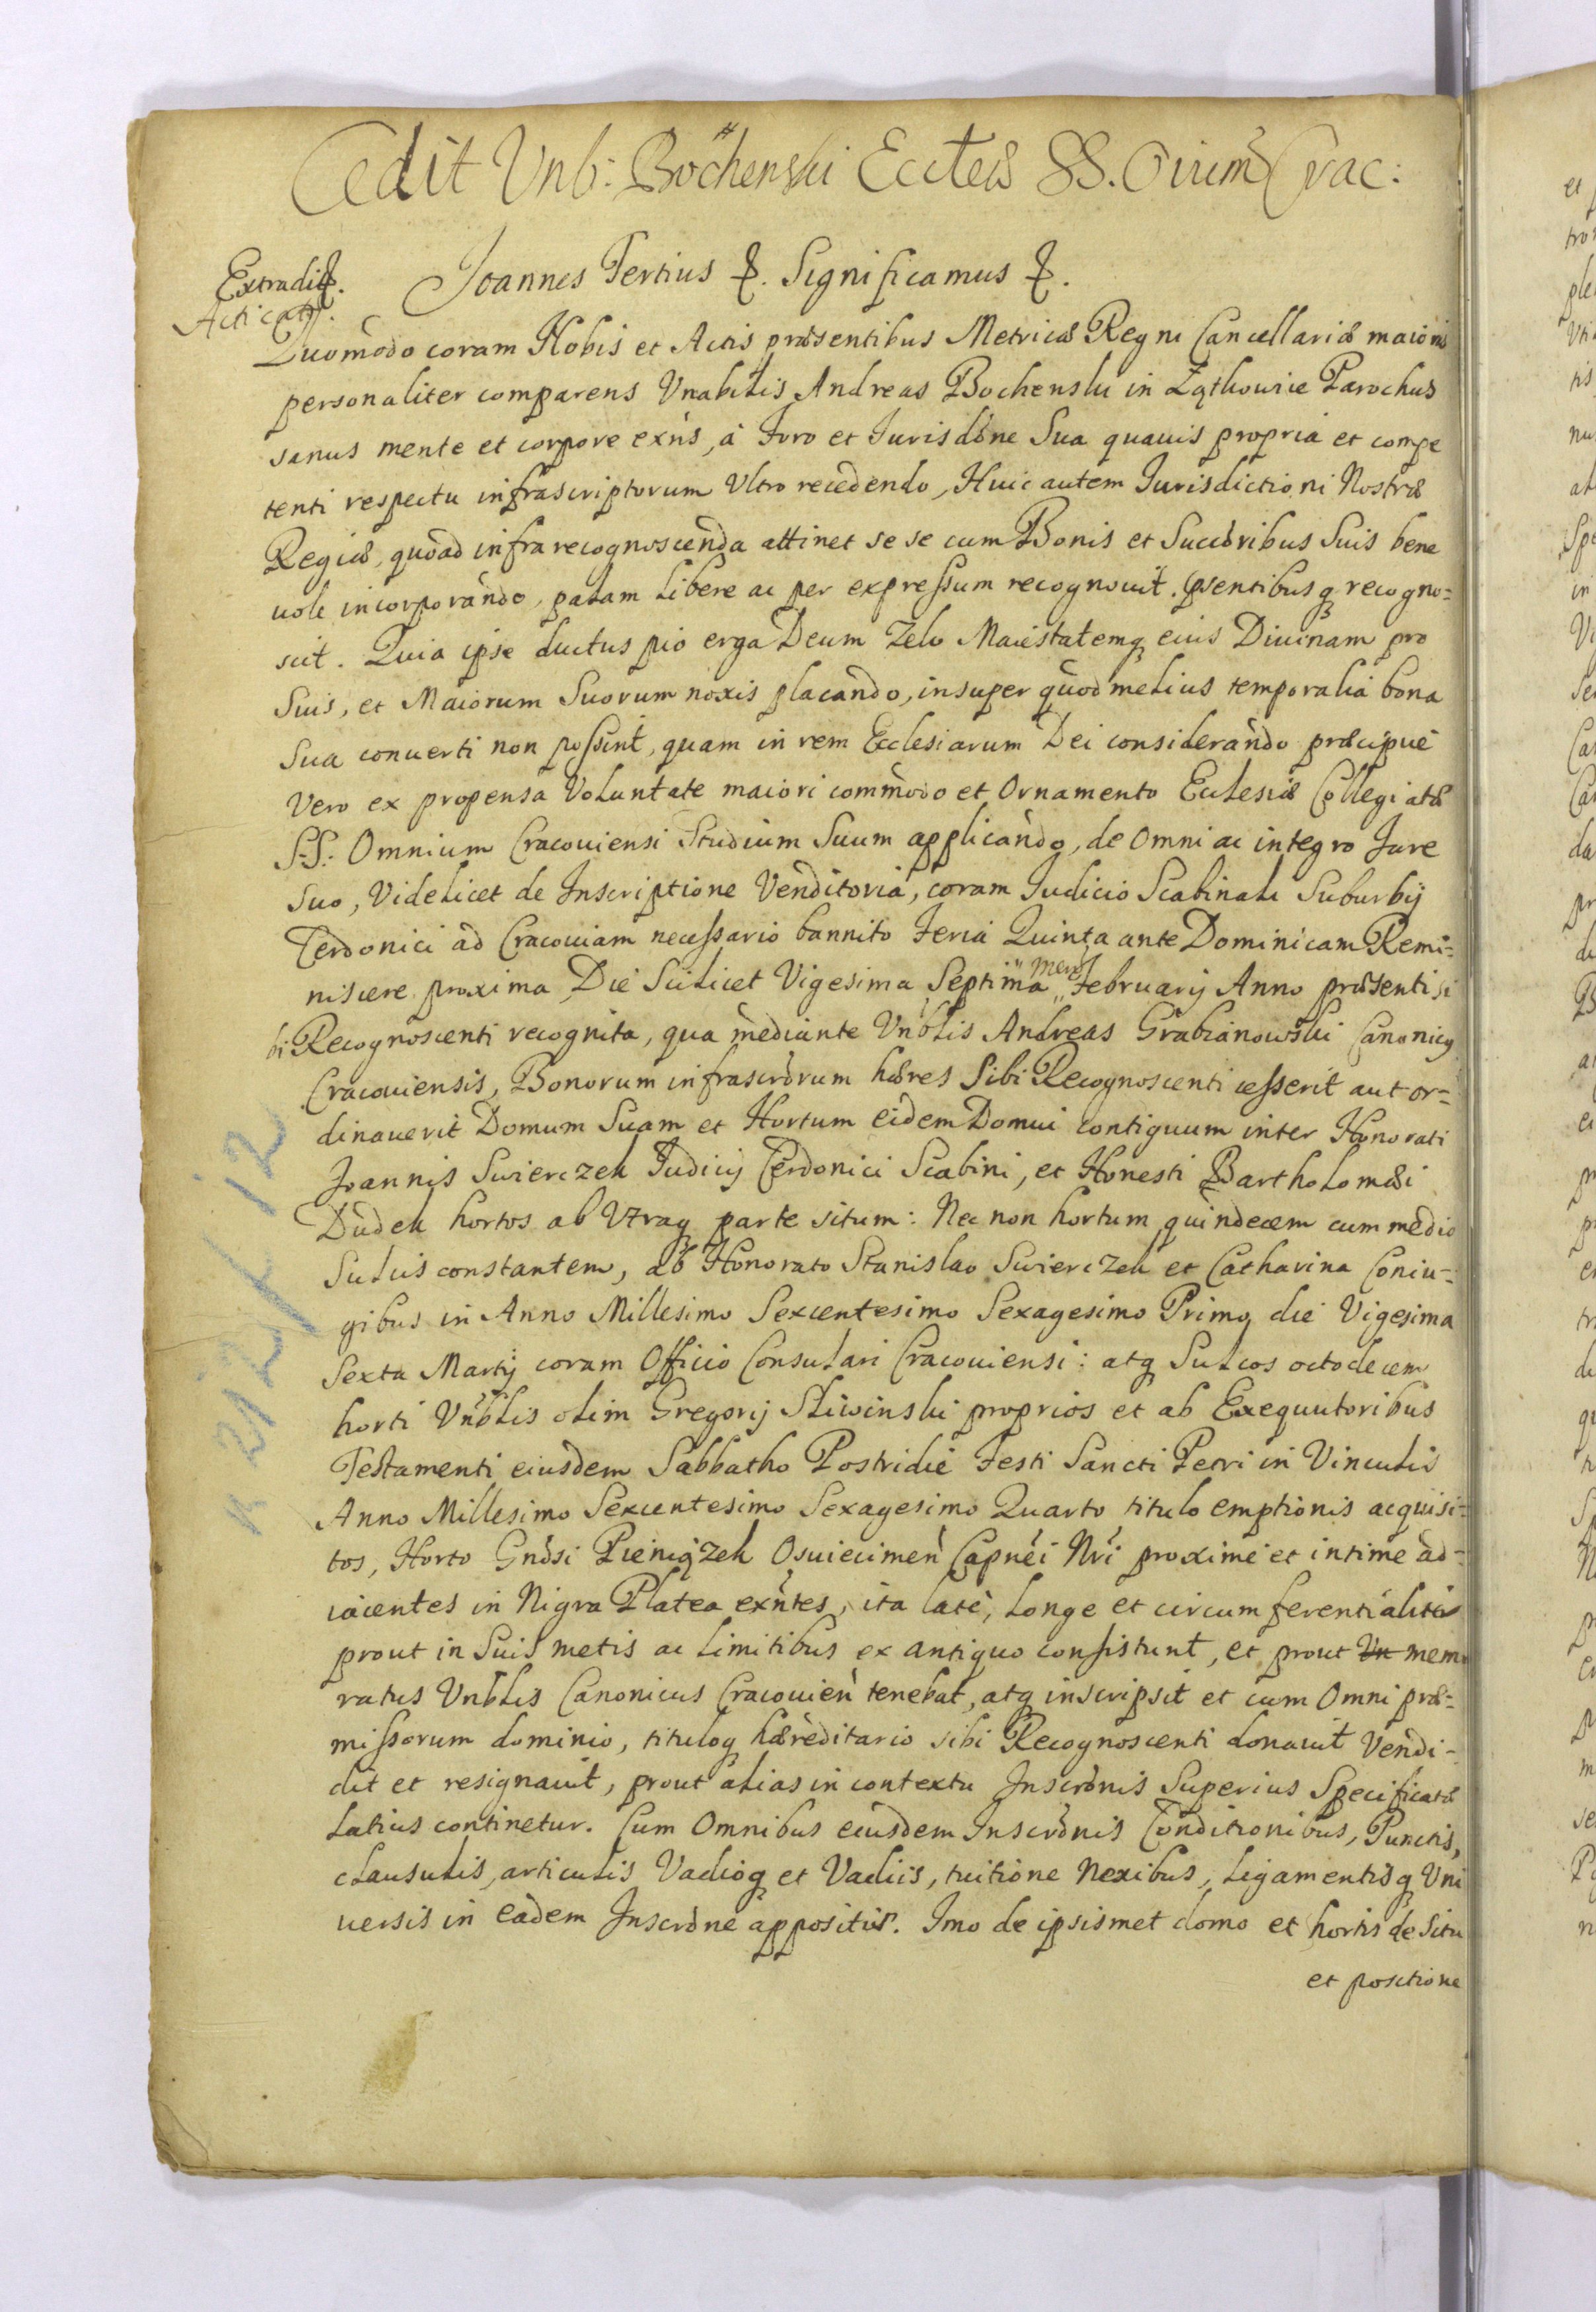 Cedit Vnb: Bochenski Eccleæ SS. Oium Crac:
Extradit.
Acticat.
Joannes Tertius &. Significamus &.
Quomodo coram Nobis et Actis præsentibus Metricæ Regni Cancellariæ maioris
personaliter comparens Vnabilis Andreas Bochenski in Zątkowice Parochus
sanus mente et corpore exñs, á Foro et Jurisdõne Sua quauis propria et compe
tenti respectu infrascriptorum Vltro recedendo, Huic autem Jurisdictioni Nostræ
Regiæ, quoad infrarecognoscenda attinet se se cum Bonis et Succõribus Suis bene
uole incorporando, palam Libere ac per expressum recognouit. pñsentibusq recogno=
scit. Quia ipse ductus pio erga Deum Zelo Maiestatemq eius Diuinam pro
Suis, et Maiorum Suorum noxis placando, insuper quod melius temporalia bona
Sua conuerti non possint, quam in rem Ecclesiarum Dei considerando præcipue
Vero ex propensa Voluntate maiori commodo et Ornamento Ecclesiæ Collegiatæ
S.S. Omnium Cracouiensi Studium Suum applicando, de Omni ac integro Jure
Suo, Videlicet de Inscriptione Venditoria, coram Judicio Scabinali Suburbij
Cerdonici ad Cracouiam necessario bannito Feria Quinta ante Dominicam Remi=
niscere proxima Die Scilicet Vigesima Septima mens Februarij Anno præsenti si
bi Recognoscenti recognita, qua mediante Vnblis Andreas Grabianowski Canonicus
Cracouiensis, Bonorum infrascrõrum hæres Sibi Recognoscenti cesserit aut or=
dinauerit Domum Suam et Hortum eidem Domui contiguum inter Honorati
Joannis Swierczek Judicij Cerdonici Scabini, et Honesti Bartholomæi
Dudek hortos ab Vtraq parte situm: Nec non hortum quindecem cum medio
Sulcis constantem, ab Honorato Stanislao Swierczek et Catharina Coniu=
gibus in Anno Millesimo Sexcentesimo Sexagesimo Primo, die Vigesima
Sexta Martij coram Officio Consulari Cracouiensi: atq Sulcos octodecem
horti Vnblis olim Gregorij Sliwinski proprios et ab Exequutoribus
Testamenti eiusdem Sabbatho Postridie Festi Sancti Petri in Vinculis
Anno Millesimo Sexcentesimo Sexagesimo Quarto titulo emptionis acquisi=
tos, Horto Gnõsi Pieniązek Osuiecimeñ Capnei Nri proxime et intime ad=
iacentes in Nigra Platea exñtes, ita late, Longe et circumferentialiter
prout in Suis metis ac Limitibus ex antiquo consistunt, et prout Vn memo
ratus Vnblis Canonicus Cracouieñ tenebat, atq inscripsit et cum Omni præ=
missorum dominio, tituloq hæreditario sibi Recognoscenti donauit Vendi=
dit et resignauit, prout alias in contextu Inscrõnis Superius Specificatæ
Latius continetur. Cum Omnibus eiusdem Inscrõnis Conditionibus, Punctis,
clausulis, articulis Vadioq et Vadiis, tuitione Nexibus, Ligamentisq Vni
uersis in eadem Inscrõne appositis. Imo de ipsismet domo et hortis de Situ
et positione